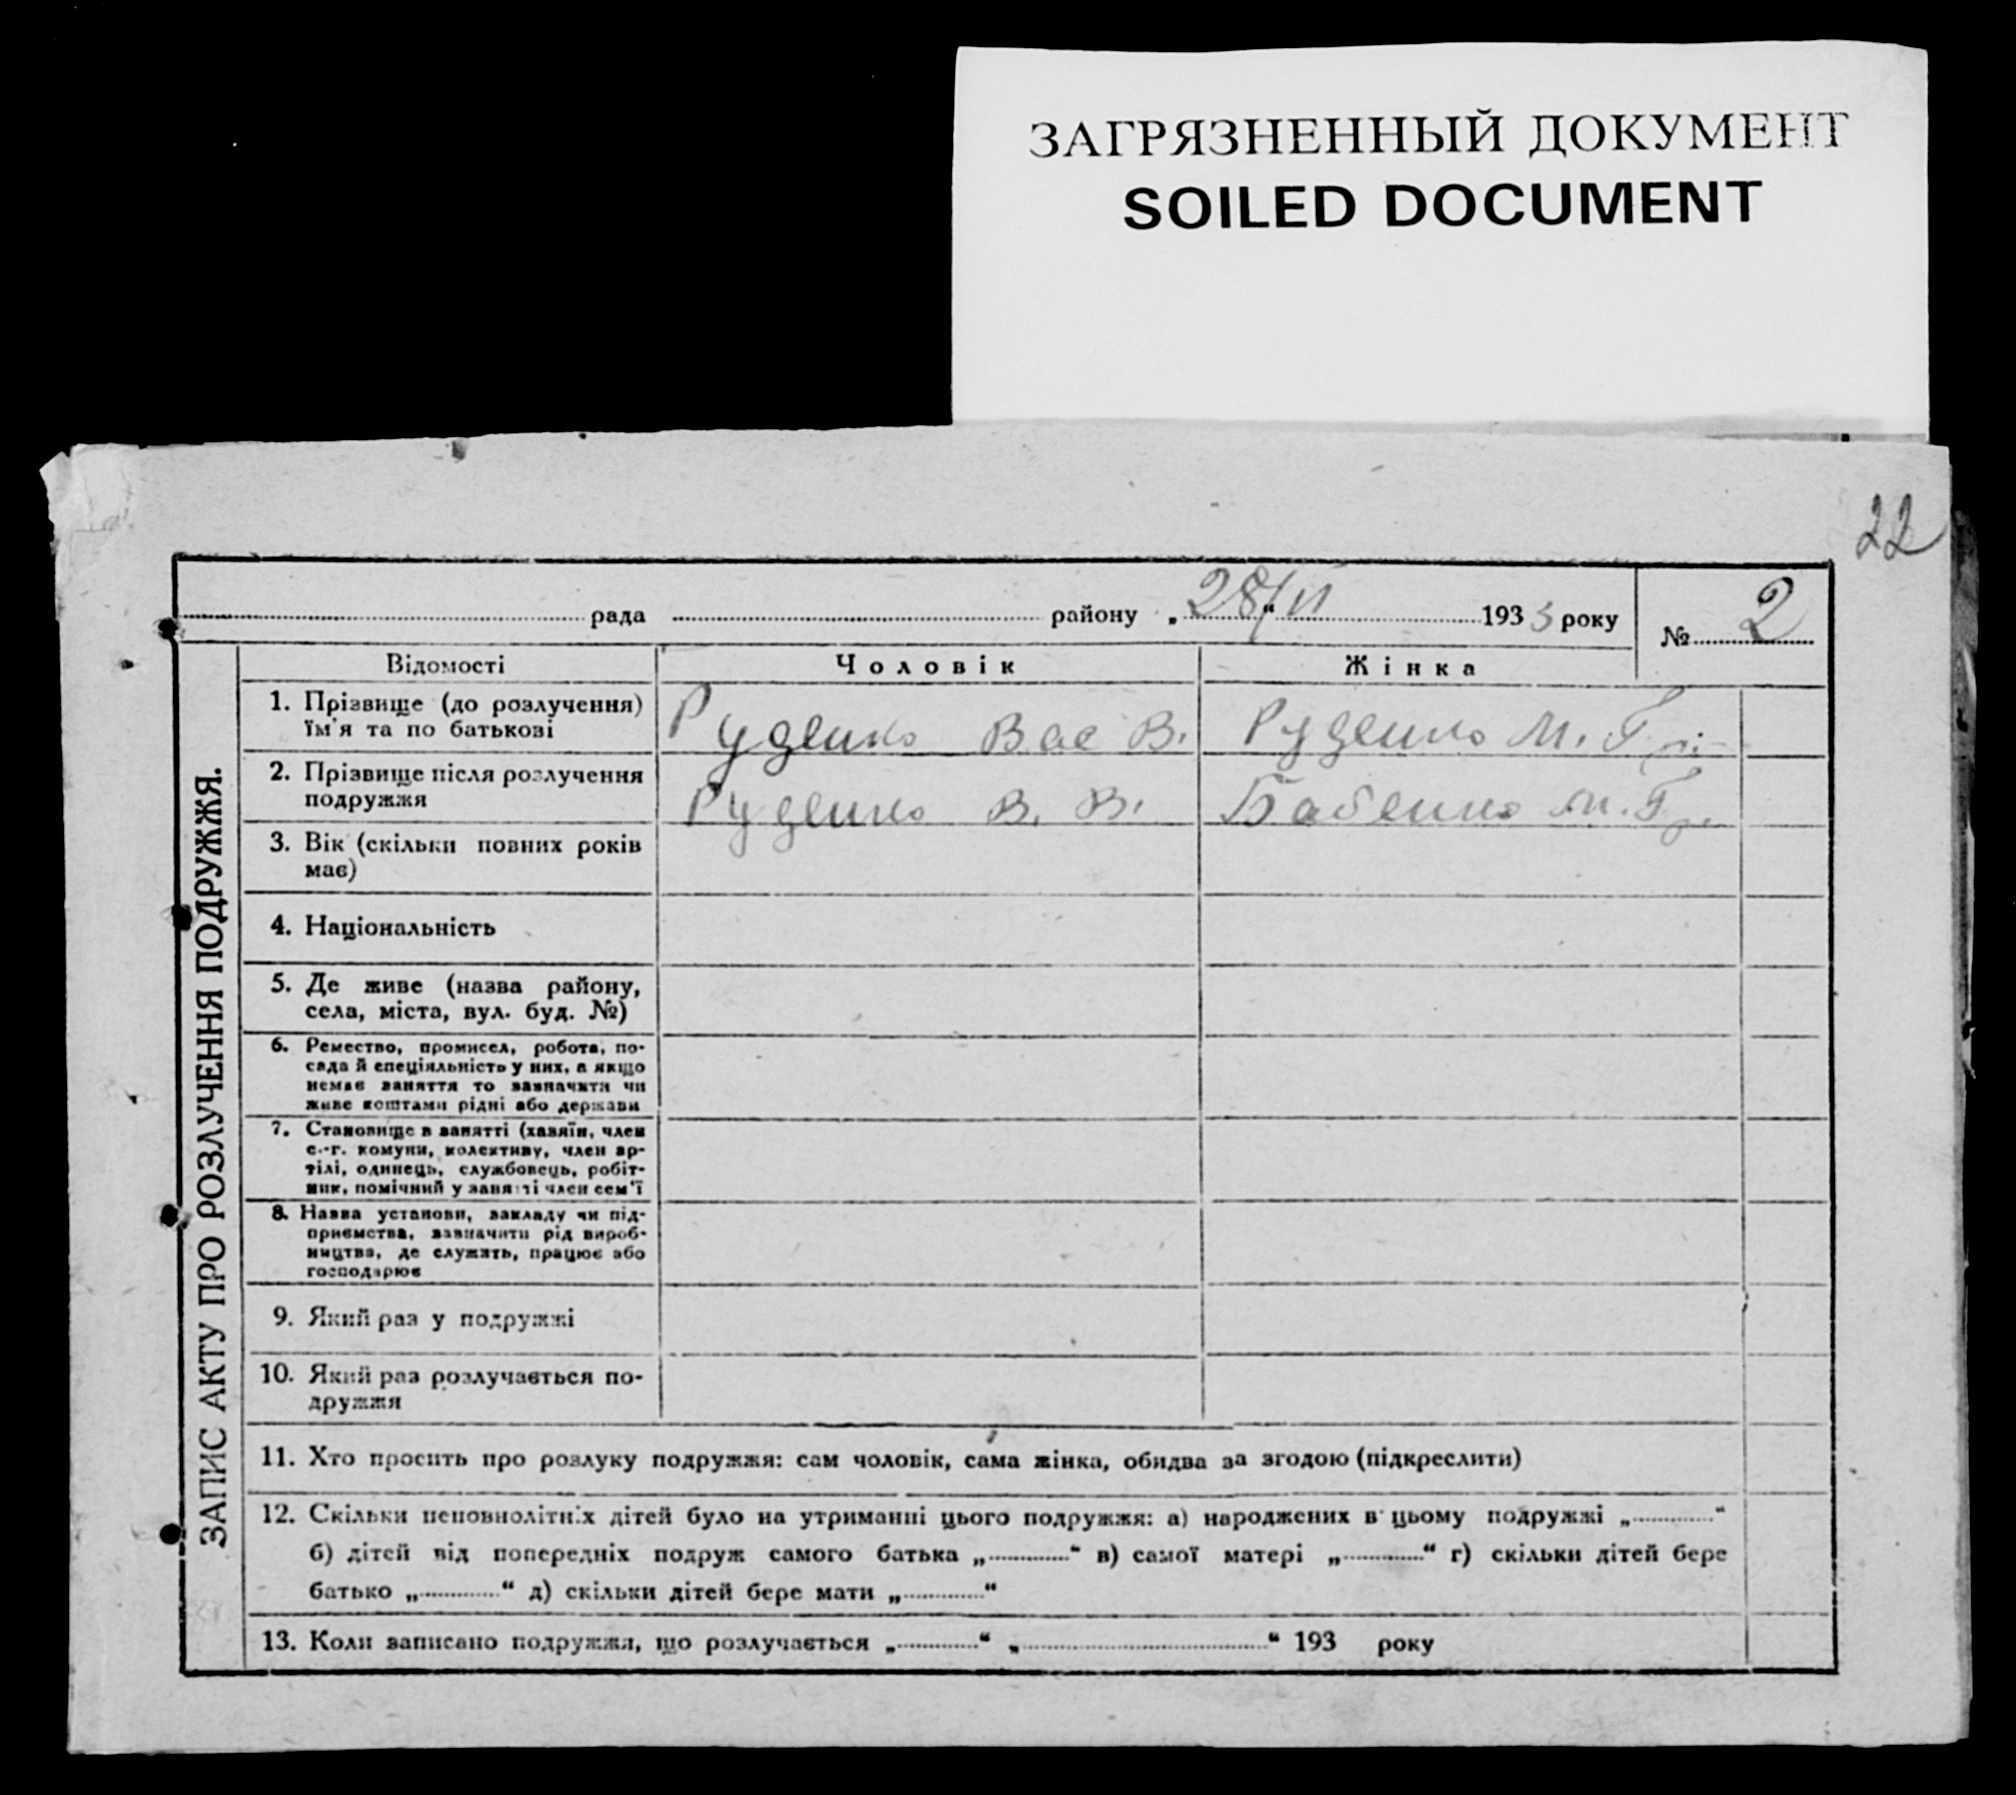 ЗАГРЯЗНЕННЫЙ ДОКУМЕНТ
SOILED DOCUMENT
22
рада району „28/VI“ 1933 року
№ 2
ЗАПИС АКТУ ПРО РОЗЛУЧЕННЯ ПОДРУЖЖЯ.
Відомості Чоловік Жінка
1. Прізвище (до розлучення)
їм'я та по батькові
Руденко Вас В. Руденко М. Гр.
2. Прізвище після розлучення
подружжя
Руденко В. В. Бабенко М. Гр.
3. Вік (скільки повних років
має)
4. Національність
5. Де живе (назва району,
села, міста, вул. буд. №)
6. Ремество, промисел, робота, по-
сада й спеціяльність у них, а якщо
немає заняття то зазначити чи
живе коштами рідні або держави
7. Становище в занятті (хазяїн, член
с.-г. комуни, колективу, член ар-
тілі, одинець, службовець, робіт-
ник, помічний у занятті член сем'ї
8. Назва установи, закладу чи під-
приємства, зазначити рід вироб-
ництва, де служить, працює або
господарює
9. Який раз у подружжі
10. Який раз розлучається по-
дружжя
11. Хто просить про розлуку подружжя: сам чоловік, сама жінка, обидва за згодою (підкреслити)
12. Скільки неповнолітніх дітей було на утриманні цього подружжя: а) народжених в цьому подружжі „............“
б) дітей від попередніх подруж самого батька „............“ в) самої матері „............“ г) скільки дітей бере
батько „............“ д) скільки дітей бере мати „............“
13. Коли записано подружжя, що розлучається „............“ „............“ 193 року